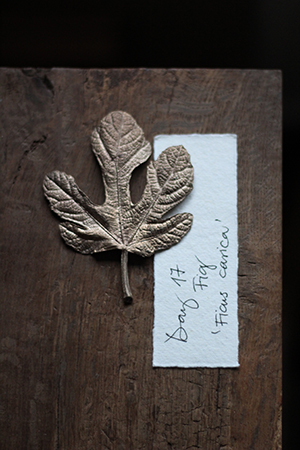 Day 17
Fig
'Ficus carica'